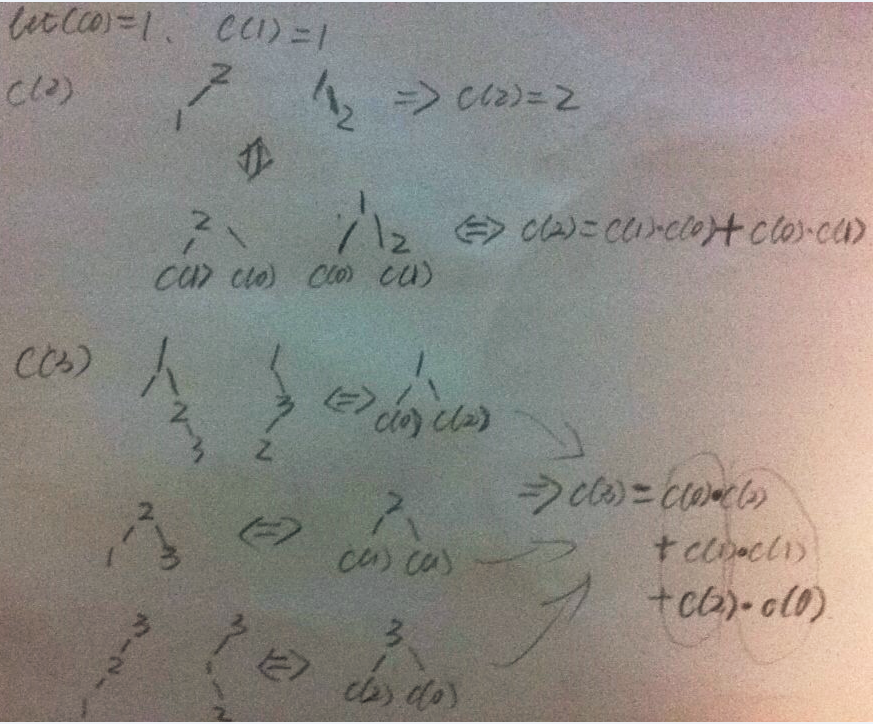 let C(0)=1. C(1)=1
C(2) 2 1 => C(2)=2
1 2
⇕
2 1 <=> C(2)=C(1)·C(0)+C(0)·C(1)
2
C(1) C(0) C(0) C(1)
C(3) 1 1 <=> 1
2 3 C(0) C(2)
3 2
=> C(3)=C(0)·C(2)
2 <=> 2 +C(1)·C(1)
1 3 C(1) C(1)
+C(2)·C(0)
3 3 <=> 3
2 C(2) C(0)
1 2